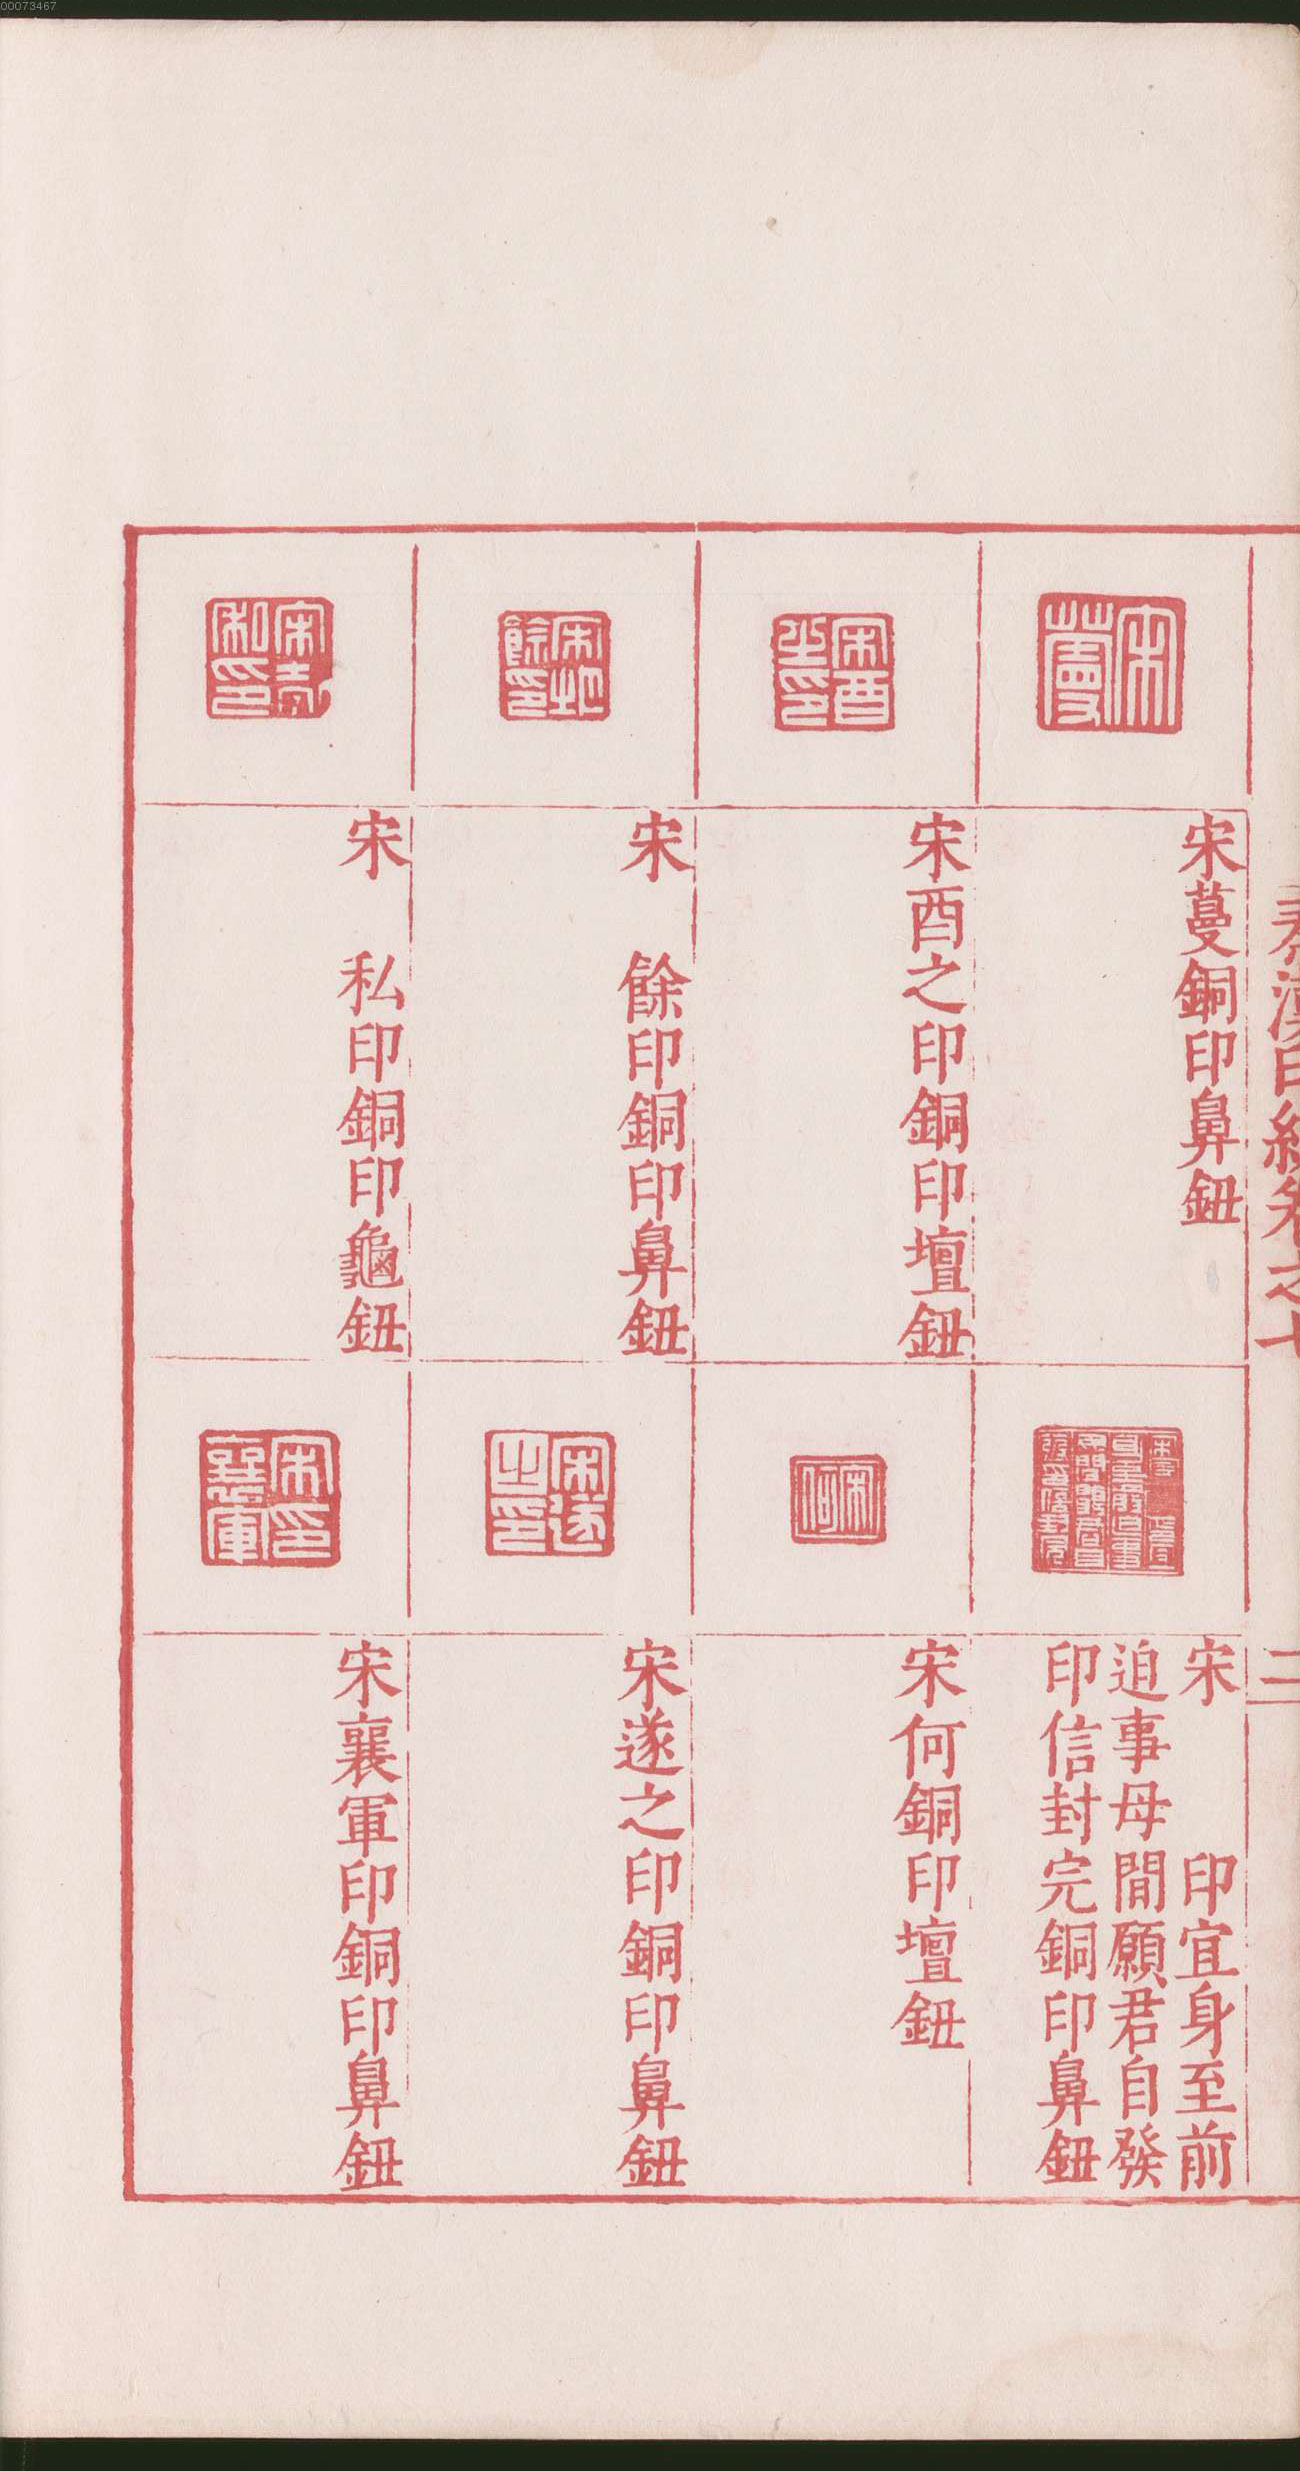 00073467
秦漢印統卷之七
二
宋蔓
宋蔓銅印鼻鈕
宋酉之印
宋酉之印銅印壇鈕
宋　餘印
宋　餘印銅印鼻鈕
宋　私印
宋　私印銅印龜鈕
宋　　印宜身至前
迫事毋閒願君自發
印信封完銅印鼻鈕
宋何
宋何銅印壇鈕
宋遂之印
宋遂之印銅印鼻鈕
宋襄軍印
宋襄軍印銅印鼻鈕